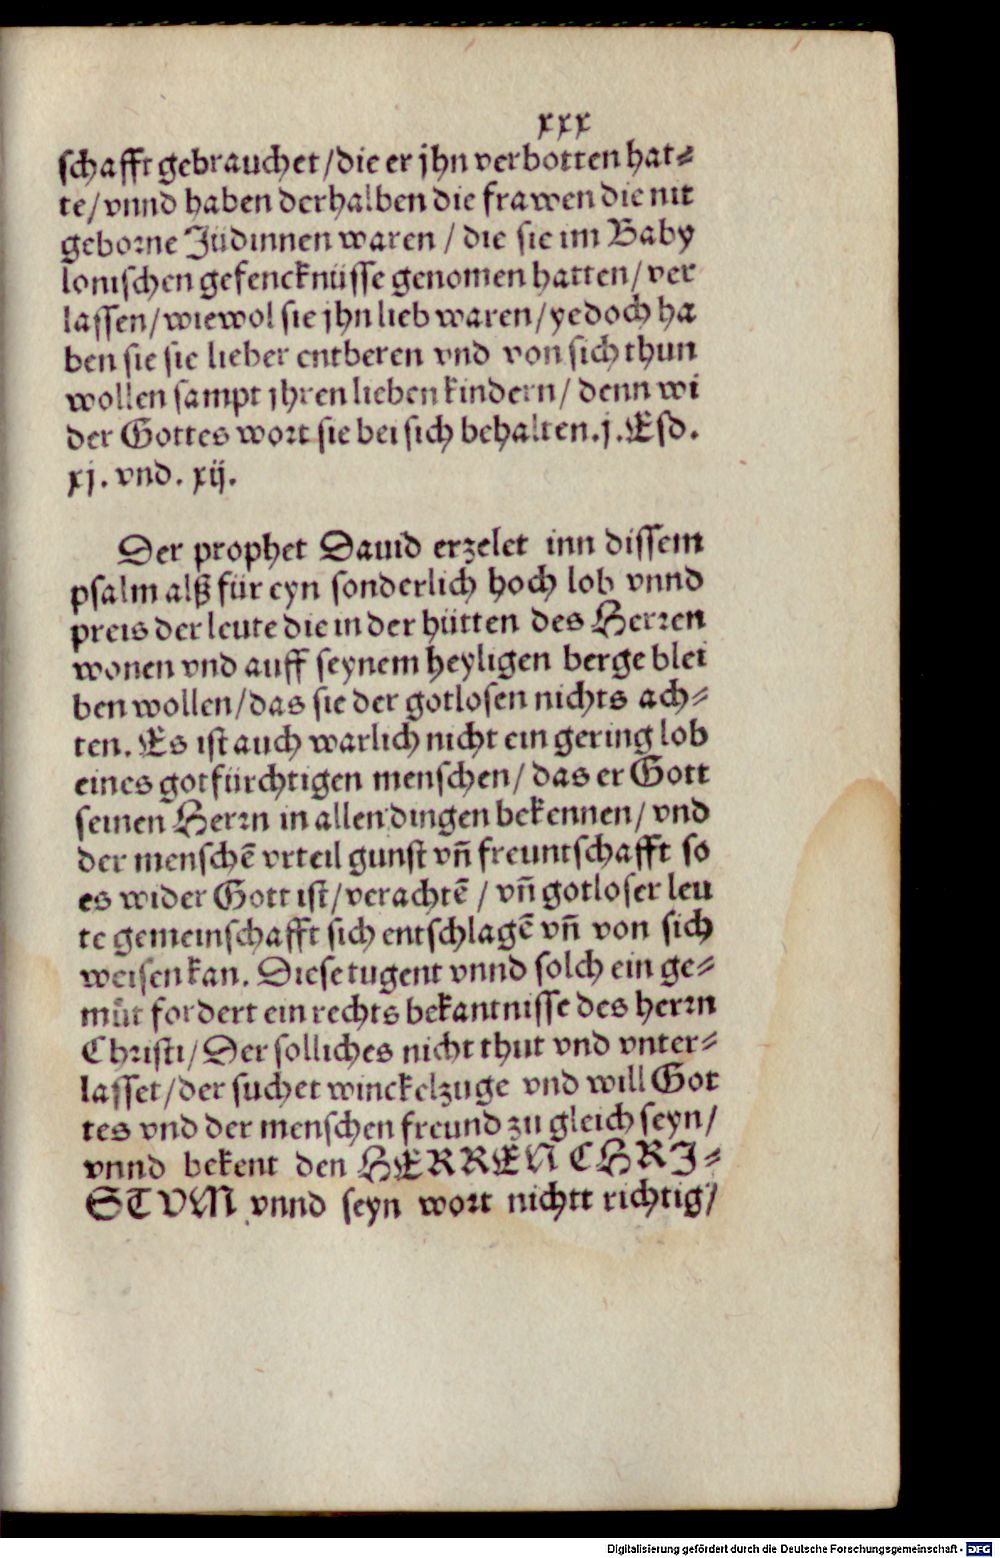 xxx
schafft gebrauchet / die er jhn verbotten hat⸗
te / vnnd haben derhalben die frawen die nit
geborne Jüdinnen waren / die sie im Baby
lonischen gefencknüsse genomen hatten / ver
lassen / wiewol sie jhn lieb waren / yedoch ha
ben sie sie lieber entberen vnd von sich thun
wollen sampt jhren lieben kindern / denn wi
der Gottes wort sie bei sich behalten. j. Esd.
xj. vnd. xij.
Der prophet Dauid erzelet inn dissem
psalm alß für eyn sonderlich hoch lob vnnd
preis der leute die in der hütten des Herren
wonen vnd auff seynem heyligen berge blei
ben wollen / das sie der gotlosen nichts ach⸗
ten. Es ist auch warlich nicht ein gering lob
eines gotfürchtigen menschen / das er Gott
seinen Herrn in allen dingen bekennen / vnd
der menschē vrteil gunst vn̄ freuntschafft so
es wider Gott ist / verachtē / vn̄ gotloser leu
te gemeinschafft sich entschlagē vn̄ von sich
weisen kan. Diese tugent vnnd solch ein ge⸗
müt fordert ein rechts bekantnisse des herrn
Christi / Der solliches nicht thut vnd vnter⸗
lasset / der suchet winckelzuge vnd will Got
tes vnd der menschen freund zu gleich seyn /
vnnd bekent den HERREN CHRI⸗
STVM vnnd seyn wort nichtt richtig /
Digitalisierung gefördert durch die Deutsche Forschungsgemeinschaft - DFG